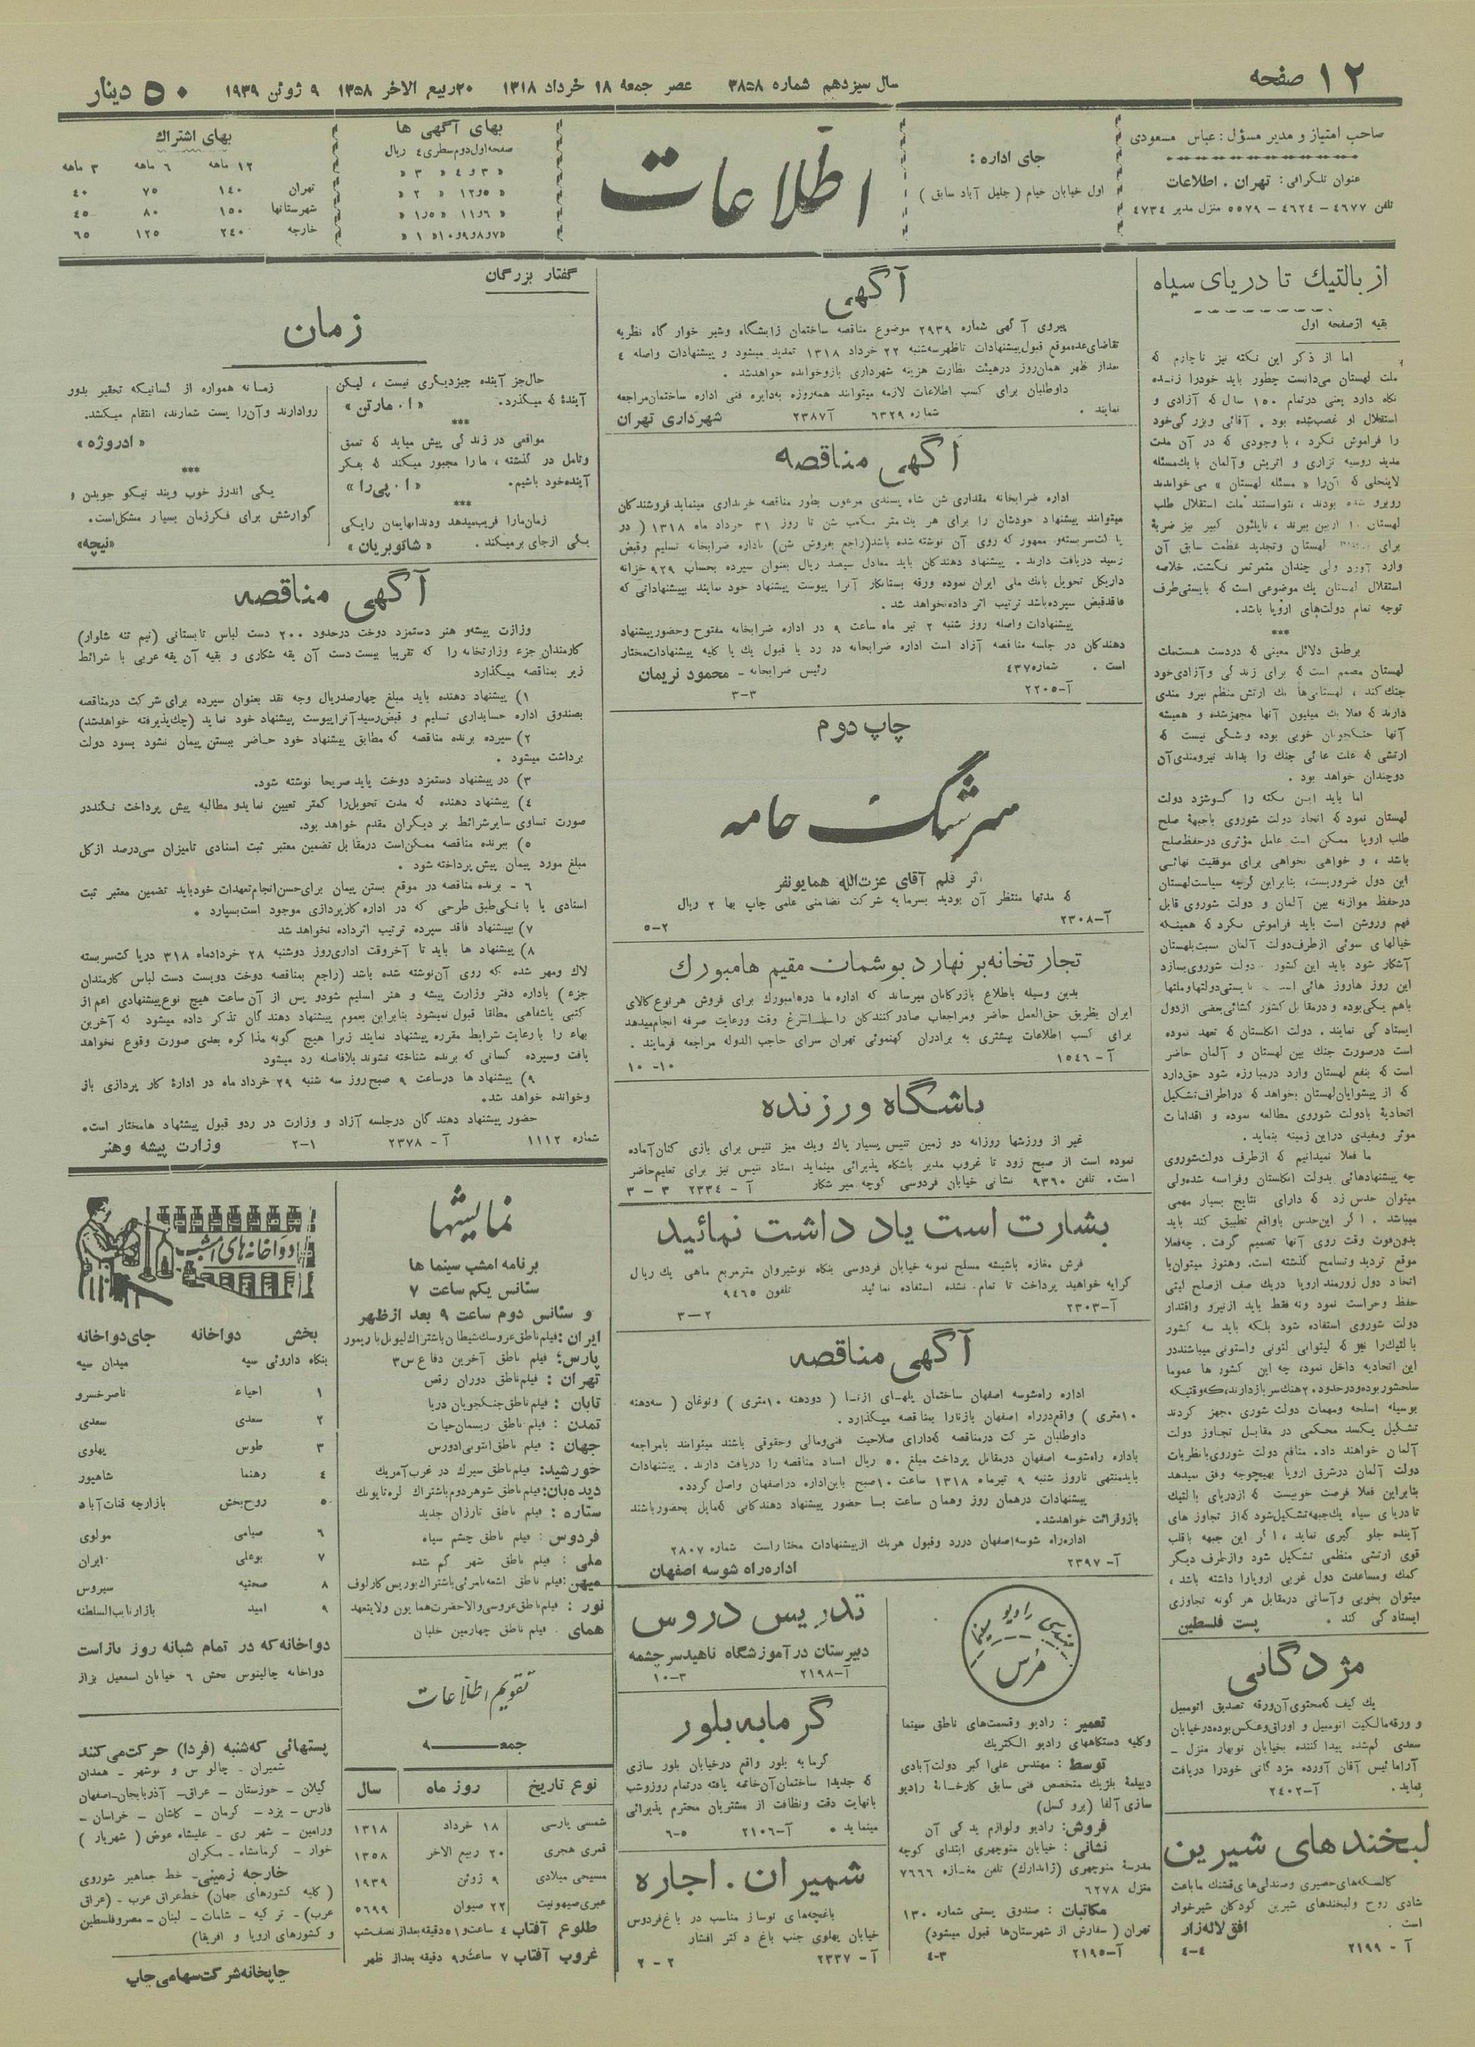 ۱۲ صفحه
سال سیزدهم شماره ۳۸۵۸ عصر جمعه ۱۸ خرداد ۱۳۱۸ ۲۰ ربیع الاخر ۱۳۵۸ ۹ ژوئن ۱۹۳۹
۵۰ دینار
صاحب امتیاز و مدیر مسؤل : عباس مسعودی
عنوان تلگرافی : تهران . اطلاعات
تلفن ۴۶۷۷ – ۴۶۲۴ – ۵۵۷۹ منزل مدیر ۴۷۳۴
جای اداره :
اول خیابان خیام ( جلیل آباد سابق )
اطلاعات
بهای آگهی ها
صفحه اول دوم سطری ٤ ریال
« ۳ و ٤ « ۳ «
« ۵ و ۱۲ « ۲ «
« ۶ و ۱۱ « ۱٫۵ «
« ۷ و ۸ و ۹ و ۱۰ « ۱ «
بهای اشتراك
۱۲ ماهه ۶ ماهه ۳ ماهه
تهران ۱۴۰ ۷۵ ۴۰
شهرستانها ۱۵۰ ۸۰ ۴۵
خارجه ۲۴۰ ۱۲۵ ۶۵
از بالتیك تا دریای سیاه
بقیه از صفحه اول
اما از ذکر این نکته نیز ناچارم که
ملت لهستان می‌دانست چطور باید خود را زنده
نگاه دارد یعنی در تمام ۱۵۰ سال که آزادی و
استقلال او غصب شده بود . آقائی و بزرگی خود
را فراموش نکرد ، با وجودی که در آن مدت
مدید روسیه تزاری و اتریش و آلمان با یك مسئله
لاینحلی که آن را « مسئله لهستان » می خواندند
روبرو شده بودند ، نتوانستند ملت استقلال طلب
لهستان را از بین ببرند ، ناپلئون کبیر نیز ضربهٔ
برای لهستان و تجدید عظمت سابق آن
وارد آورد ولی چندان مثمر ثمر نگشت . خلاصه
استقلال لهستان یك موضوعی است که بایستی طرف
توجه تمام دولت‌های اروپا باشد .
***
بر طبق دلائل معینی که در دست هست ملت
لهستان مصمم است که برای زندگی و آزادی خود
جنك کند ، لهستانی‌ها یك ارتش منظم نیرو مندی
دارند که فعلا یك میلیون آنها مجهز شده و همیشه
آنها جنگجویان خوبی بوده و شکی نیست که
ارتشی که علت غائی جنك را بداند نیرومندی آن
دو چندان خواهد بود .
اما باید این نکته را گوشزد دولت
لهستان نمود که اتحاد دولت شوروی با جبههٔ صلح
طلب اروپا ممکن است عامل مؤثری در حفظ صلح
باشد ، و خواهی نخواهی برای موفقیت نهائی
این دول ضروریست ، بنابراین گرچه سیاست لهستان
در حفظ موازنه بین آلمان و دولت شوروی قابل
فهم و روشن است باید فراموش نکرد که همینکه
خیالهای سوئی از طرف دولت آلمان نسبت بلهستان
آشکار شود باید این کشور دولت شوروی بسازد
این روز ها روز هائی است بایستی دولتها و ملتها
باهم یکی بوده و در مقابل کشور گشائی بعضی از دول
ایستادگی نمایند . دولت انگلستان که تعهد نموده
است در صورت جنك بین لهستان و آلمان حاضر
است که بنفع لهستان وارد در مبارزه شود حق دارد
که از پیشوایان لهستان بخواهد که در اطراف تشکیل
اتحادیهٔ با دولت شوروی مطالعه نموده و اقدامات
موثر و مفیدی در این زمینه بنماید .
ما فعلا نمیدانیم که از طرف دولت شوروی
چه پیشنهادهائی بدولت انگلستان و فرانسه شده ولی
میتوان حدس زد که دارای نتایج بسیار مهمی
میباشد . اگر این حدس با واقع تطبیق کند باید
بدون فوت وقت روی آنها تصمیم گرفت . چه فعلا
موقع تردید و تسامح گذشته است . و هنوز میتوان با
اتحاد دول زورمند اروپا در یك صف از صلح گیتی
حفظ و حراست نمود و نه فقط باید از نیرو و اقتدار
دولت شوروی استفاده شود بلکه باید سه کشور
بالتیك را نیز که لیتوانی لتونی و استونی میباشند در
این اتحادیه داخل نمود ، چه این کشور ها عموما
سلحشور بوده و در حدود ۲۰ هنك سرباز دارند ، که وقتیکه
بوسیله اسلحه و مهمات دولت شوروی مجهز گردند
تشکیل یکسد محکمی در مقابل تجاوز دولت
آلمان خواهند داد . منافع دولت شوروی با نظریات
دولت آلمان در شرق اروپا بهیچوجه وفق نمیدهد
بنابراین فعلا فرصت خوبیست که از دریای بالتیك
تا دریای سیاه یك جبهه تشکیل شود که از تجاوز های
آینده جلو گیری نماید ، اگر این جبهه با قلب
قوی ارتشی منظمی تشکیل شود و از طرف دیگر
کمك و مساعدت دول غربی اروپا را داشته باشد ،
میتوان بخوبی و آسانی در مقابل هر گونه تجاوزی
ایستادگی کند . پست فلسطین
مژدگانی
یك کیف که محتوی آن ورقه تصدیق اتومبیل
و ورقه مالکیت اتومبیل و اوراق و عکس بوده در خیابان
سعدی گم شده پیدا کننده بخیابان نوبهار منزل –
آراما ئیس آقان آورده مژدگانی خود را دریافت
نماید . آ–۲۴۰۲
لبخندهای شیرین
کالسکه‌های حصیری و صندلی‌های قشنك ما باعث
شادی روح و لبخندهای شیرین کودکان شیرخوار
است . افق لاله‌زار
آ – ۲۱۹۹ ۴–۴
آگهی
پیروی آگهی شماره ۲۹۳۹ موضوع مناقصه ساختمان زایشگاه و شیر خوار گاه نظر به
تقاضای عده موقع قبول پیشنهادات تا ظهر سه‌شنبه ۲۲ خرداد ۱۳۱۸ تمدید میشود و پیشنهادات واصله ٤
بعد از ظهر همان روز در هیئت نظارت هزینه شهرداری باز و خوانده خواهد شد .
داوطلبان برای کسب اطلاعات لازمه میتوانند همه‌روزه به دایره فنی اداره ساختمان مراجعه
نمایند . شماره ۶۳۲۹ آ۲۳۸۷ شهرداری تهران
آگهی مناقصه
اداره ضرابخانه مقداری شن شاه پسندی مرغوب بطور مناقصه خریداری مینماید فروشندگان
میتوانند پیشنهاد خودشان را برای هر یك متر مکعب شن تا روز ۳۱ خرداد ماه ۱۳۱۸ ( در
پاکت سربسته و ممهور که روی آن نوشته شده باشد (راجع بفروش شن) باداره ضرابخانه تسلیم و قبض
رسید دریافت دارند . پیشنهاد دهندگان باید معادل سیصد ریال بعنوان سپرده بحساب ۹۲۹ خزانه
داری کل تحویل بانك ملی ایران نموده ورقه بستانکار آنرا پیوست پیشنهاد خود نمایند به پیشنهاداتی که
فاقد قبض سپرده باشد ترتیب اثر داده نخواهد شد .
پیشنهادات واصله روز شنبه ۲ تیر ماه ساعت ۹ در اداره ضرابخانه مفتوح و حضور پیشنهاد
دهندگان در جلسه مناقصه آزاد است اداره ضرابخانه در رد یا قبول یك یا کلیه پیشنهادات مختار
است . شماره ۴۳۷ رئیس ضرابخانه – محمود نریمان
آ–۲۲۰۵ ۳–۳
چاپ دوم
سرشگ خامه
اثر قلم آقای عزت‌الله همایونفر
که مدتها منتظر آن بودید بسرمایه شرکت تضامنی علمی چاپ بها ۲ ریال
آ–۲۳۰۸ ۲–۵
تجارتخانه برنهارد بوشمان مقیم هامبورك
بدین وسیله باطلاع بازرگانان میرساند که اداره ما در هامبورك برای فروش هر نوع کالای
ایران بطریق حق‌العمل حاضر و مراجعات صادر کنندگان را باسرع وقت و رعایت صرفه انجام میدهد
برای کسب اطلاعات بیشتری به برادران کهنموئی تهران سرای حاجب الدوله مراجعه فرمایند .
آ – ۱۵۴۶ ۱۰–۱۰
باشگاه ورزنده
غیر از ورزشها روزانه دو زمین تنیس بسیار پاك و یك میز تنیس برای بازی کنان آماده
نموده است از صبح زود تا غروب مدیر باشگاه پذیرائی مینماید استاد تنیس نیز برای تعلیم حاضر
است . تلفن ۹۳۶۰ نشانی خیابان فردوسی کوچه میر شکار آ – ۲۳۳۴ ۳ – ۳
بشارت است یاد داشت نمائید
فرش مغازه باشیشه مسلح نمونه خیابان فردوسی بنگاه نوشیروان مترمربع ماهی یك ریال
کرایه خواهید پرداخت تا تمام نشده استفاده نمائید تلفون ۹۴۶۵
آ–۲۳۰۳ ۲–۳
آگهی مناقصه
اداره راه شوسه اصفهان ساختمان پلهای ازنا ( دو دهنه ۱۰ متری ) و نوغان ( سه دهنه
۱۰ متری ) واقع در راه اصفهان باز نا را بمناقصه میگذارد .
داوطلبان شرکت در مناقصه که دارای صلاحیت فنی و مالی و حقوقی باشند میتوانند با مراجعه
باداره راه شوسه اصفهان در مقابل پرداخت مبلغ ۵۰ ریال اسناد مناقصه را دریافت دارند . پیشنهادات
باید منتهی تا روز شنبه ۹ تیر ماه ۱۳۱۸ ساعت ۱۰ صبح باین اداره در اصفهان واصل گردد .
پیشنهادات در همان روز و همان ساعت با حضور پیشنهاد دهندگانی که مایل بحضور باشند
باز و قرائت خواهد شد .
اداره راه شوسه اصفهان در رد و قبول هر یك از پیشنهادات مختار است شماره ۲۸۰۷
آ– ۲۳۹۷ اداره راه شوسه اصفهان
مهندسی رادیو سینما
مُرس
تعمیر : رادیو و قسمت‌های ناطق سینما
و کلیه دستگاههای رادیو الکتریك
توسط : مهندس علی اکبر دولت آبادی
دیپلمهٔ بلژیك متخصص فنی سابق کارخانهٔ رادیو
سازی آلفا (بروکسل)
فروش : رادیو و لوازم یدکی آن
نشانی : خیابان منوچهری ابتدای کوچه
مدرسهٔ منوچهری (ژاندارك) تلفن مغازه ۷۶۶۶
منزل ۶۲۷۸
مکاتبات : صندوق پستی شماره ۱۳۰
تهران ( سفارش از شهرستان‌ها قبول میشود)
آ–۲۱۹۵ ۳–۴
تدریس دروس
دبیرستان در آموزشگاه ناهید سرچشمه
آ–۲۱۹۸ ۳–۱۰
گرمابه بلور
گرمابه بلور واقع در خیابان بلور سازی
که جدیدا ساختمان آن خاتمه یافته در تمام روز و شب
بانهایت دقت و نظافت از مشتریان محترم پذیرائی
مینماید . آ–۲۱۰۶ ۵–۶
شمیران . اجاره
باغچه‌های نوساز مناسب در باغ فردوس
خیابان پهلوی جنب باغ دکتر افشار
آ– ۲۳۳۷ ۲–۲
گفتار بزرگان
زمان
حال جز آینده چیز دیگری نیست ، لیکن
آیندهٔ که میگذرد . « ا . مارتن »
***
مواقعی در زندگی پیش میاید که تعمق
و تامل در گذشته ، ما را مجبور میکند که بفکر
آینده خود باشیم . « ا . پی‌را »
***
زمان ما را فریب میدهد و دندانهایمان را یکی
یکی از جای بر میکند . « شاتوبریان »
زمانه همواره از کسانیکه تحقیر بدو
روا دارند و آن‌را پست شمارند ، انتقام میکشد .
« ادروژه »
***
یکی اندرز خوب و پند نیکو جویدن و
گوارشش برای فکر زمان بسیار مشکل است .
«نیچه»
آگهی مناقصه
وزارت پیشه و هنر دستمزد دوخت در حدود ۲۰۰ دست لباس تابستانی (نیم تنه شلوار)
کارمندان جزء وزارتخانه را که تقریبا بیست دست آن یقه شکاری و بقیه آن یقه عربی با شرائط
زیر بمناقصه میگذارد
۱) پیشنهاد دهنده باید مبلغ چهارصد ریال وجه نقد بعنوان سپرده برای شرکت در مناقصه
بصندوق اداره حسابداری تسلیم و قبض رسید آنرا پیوست پیشنهاد خود نماید (چك پذیرفته نخواهد شد)
۲) سپرده برنده مناقصه که مطابق پیشنهاد خود حاضر ببستن پیمان نشود بسود دولت
برداشت میشود .
۳) در پیشنهاد دستمزد دوخت باید صریحا نوشته شود.
۴) پیشنهاد دهنده که مدت تحویل را کمتر تعیین نماید و مطالبه پیش پرداخت نکند در
صورت تساوی سایر شرائط بر دیگران مقدم خواهد بود .
۵) ببرنده مناقصه ممکن است در مقابل تضمین معتبر ثبت اسنادی تا میزان سی درصد از کل
مبلغ مورد پیمان پیش پرداخته شود .
۶ – برنده مناقصه در موقع بستن پیمان برای حسن انجام تعهدات خود باید تضمین معتبر ثبت
اسنادی یا بانکی طبق طرحی که در اداره کارپردازی موجود است بسپارد .
۷) پیشنهاد فاقد سپرده ترتیب اثر داده نخواهد شد
۸) پیشنهاد ها باید تا آخر وقت اداری روز دوشنبه ۲۸ خرداد ماه ۳۱۸ در پاکت سربسته
لاك و مهر شده که روی آن نوشته شده باشد (راجع بمناقصه دوخت دویست دست لباس کارمندان
جزء ) باداره دفتر وزارت پیشه و هنر تسلیم شود و پس از آن ساعت هیچ نوع پیشنهادی اعم از
کتبی یا شفاهی مطلقا قبول نمیشود بنابراین بعموم پیشنهاد دهندگان تذکر داده میشود که آخرین
بهاء را با رعایت شرایط مقرره پیشنهاد نمایند زیرا هیچ گونه مذاکره بعدی صورت وقوع نخواهد
یافت و سپرده کسانی که برنده شناخته نشوند بلافاصله رد میشود
۹) پیشنهاد ها در ساعت ۹ صبح روز سه شنبه ۲۹ خرداد ماه در ادارهٔ کار پردازی باز
و خوانده خواهد شد .
حضور پیشنهاد دهندگان در جلسه آزاد و وزارت در رد و قبول پیشنهاد ها مختار است .
شماره ۱۱۱۲ آ – ۲۳۷۸ ۱–۲ وزارت پیشه و هنر
نمایشها
برنامه امشب سینما ها
سئانس یکم ساعت ۷
و سئانس دوم ساعت ۹ بعد از ظهر
ایران : فیلم ناطق عروسك شیطان باشتراك لیونل باریمور
پارس : فیلم ناطق آخرین دفاع س۳
تهران : فیلم ناطق دوران رقص
تابان : فیلم ناطق جنگجویان دریا
تمدن : فیلم ناطق ریسمان حیات
جهان : فیلم ناطق انتونی ادورس
خورشید : فیلم ناطق سیرك در غرب آمریك
دیده‌بان : فیلم ناطق شوهر دوم باشتراك لرتا یونك
ستاره : فیلم ناطق تارزان جدید
فردوس : فیلم ناطق چشم سیاه
ملی : فیلم ناطق شهر گم شده
میهن : فیلم ناطق اشعه نامرئی باشتراك بوریس کارلوف
نور : فیلم ناطق عروسی والاحضرت همایون ولایتعهد
همای : فیلم ناطق چهارمین خلبان
تقویم اطلاعات
جمعه
نوع تاریخ روز ماه سال
شمسی پارسی ۱۸ خرداد ۱۳۱۸
قمری هجری ۲۰ ربیع الاخر ۱۳۵۸
مسیحی میلادی ۹ ژوئن ۱۹۳۹
عبری صیهونیت ۲۲ صیوان ۵۶۹۹
طلوع آفتاب ٤ ساعت و ۵۱ دقیقه بعد از نصف شب
غروب آفتاب ۷ ساعت و ۹ دقیقه بعد از ظهر
دواخانه‌های امشب
بخش دواخانه جای دواخانه
بنگاه داروئی سپه میدان سپه
۱ احیاء ناصر خسرو
۲ سعدی سعدی
۳ طوس پهلوی
۴ رهنما شاهپور
۵ روح‌بخش بازارچه قنات آباد
۶ صیامی مولوی
۷ بوعلی ایران
۸ صحتیه سیروس
۹ امید بازار نایب السلطنه
دواخانه که در تمام شبانه روز باز است
دواخانه جالینوس بخش ۶ خیابان اسمعیل بزاز
پستهائی که شنبه (فردا) حرکت می کند
شمیران . چالوس و نوشهر – همدان
گیلان – خوزستان – عراق – آذربایجان – اصفهان
فارس – یزد – کرمان – کاشان – خراسان –
ورامین – شهر ری – علیشاه عوض ( شهریار )
خوار – کرمانشاه – مکران
خارجه زمینی – خط جماهیر شوروی
( کلیه کشورهای جهان) خط عراق عرب – (عراق
عرب) – ترکیه – شامات – لبنان – مصر و فلسطین
و کشورهای اروپا و افریقا)
چاپخانه شرکت سهامی چاپ